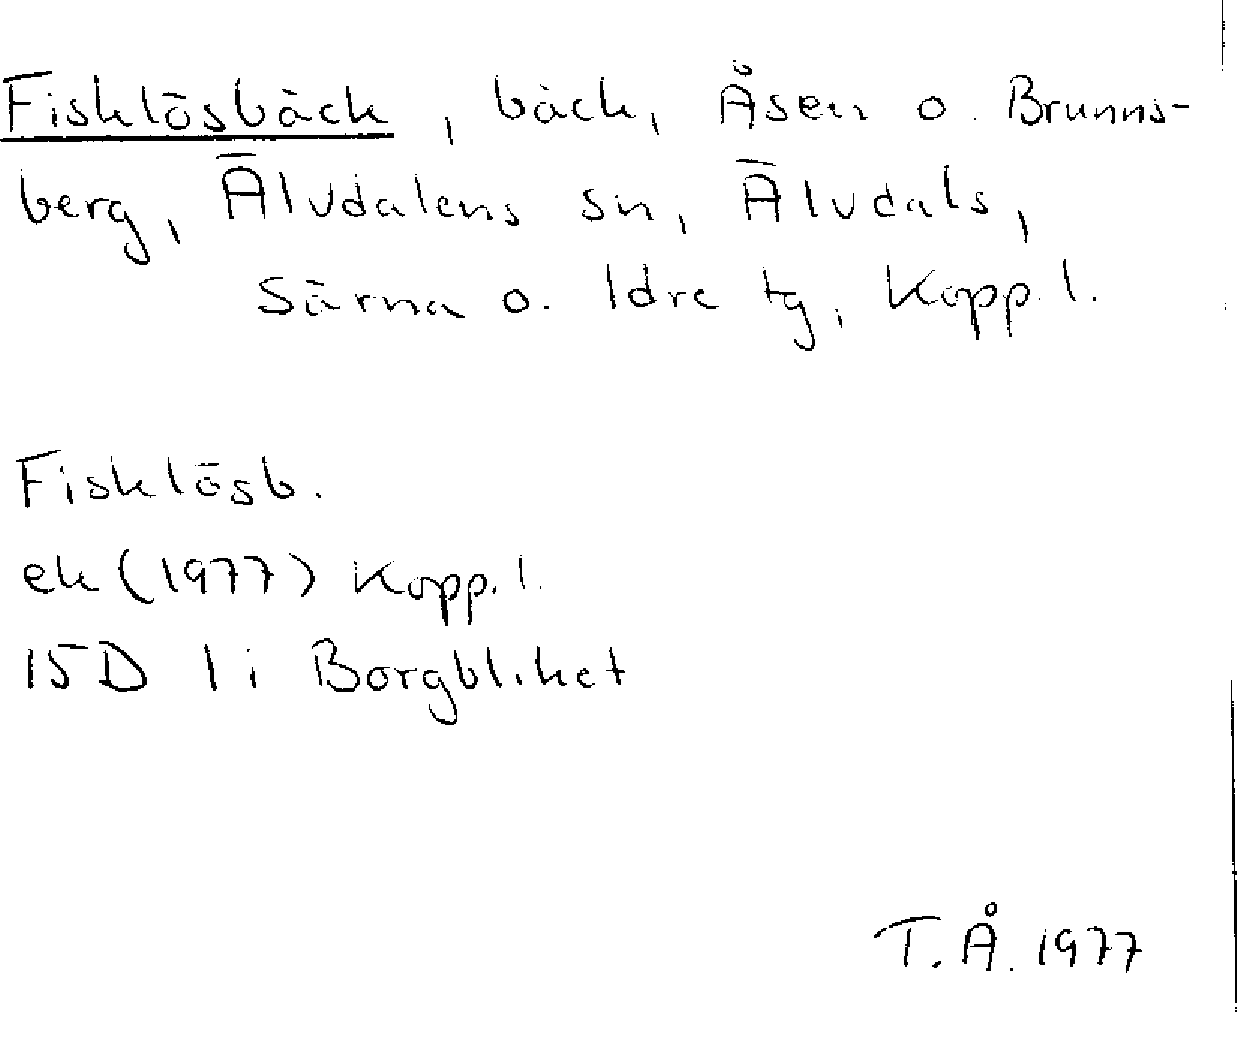 Fisklösbäck, bäck, Åsen o. Brunns-
berg, Älvdalens sn, Älvdals,
Särna o. Idre tg, Kopp. l.
Fisklösb.
ek (1977) Kopp. l.
15D 1i Borgbliket
T.Å. 1977